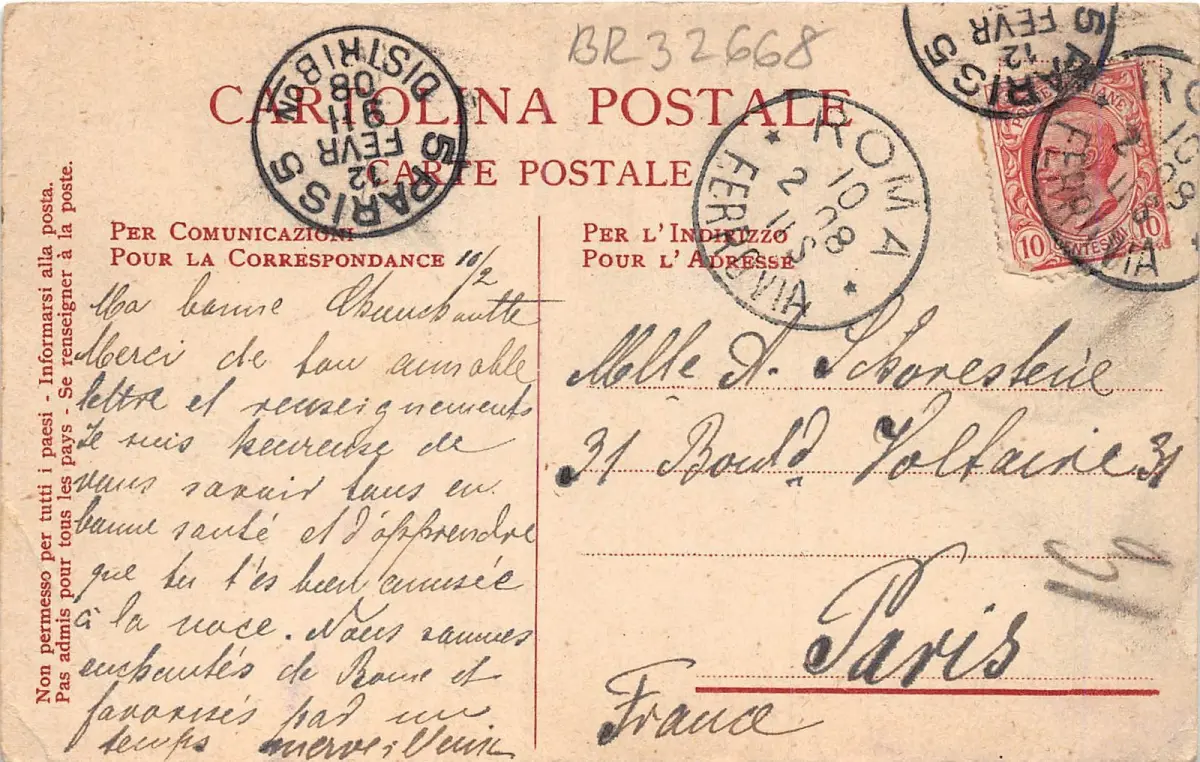 BR32668
CARTOLINA POSTALE
CARTE POSTALE
Non permesso per tutti i paesi - Informarsi alla posta.
Pas admis pour tous les pays - Se renseigner à la poste.
PER COMUNICAZIONI
POUR LA CORRESPONDANCE
10/2
Ma bonne
Merci de ton aimable
lettre et renseignements
Je suis heureuse de
vous savoir tous en
bonne santé et d'apprendre
que tu t'es bien amusée
à la noce. Nous sommes
enchantés de Rome et
favorisés par un
temps merveilleux
PER L'INDIRIZZO
POUR L'ADRESSE
Melle A.
31 Bould Voltaire 31
Paris
France
PARIS 5
12
FEVR
9 11
08
DISTRIBON
5
ROMA
10
2 08
11 S
FERROVIA
PARIS 5
12
FEVR
5
10 10
CENTESIMI
RO
10
2 08
11 S
FERROVIA